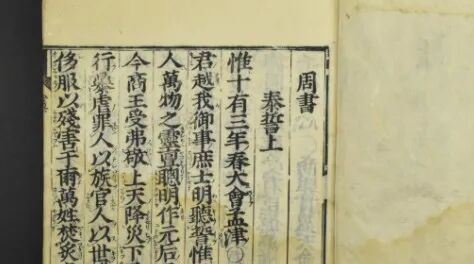 周書
泰誓上
惟十有三年春大會孟津○
君越我御事庶士明聽誓惟
人萬物之靈亶聰明作元后
今商王受弗敬上天降災下
行暴虐罪人以族官人以世
侈服以殘害于爾萬姓焚炙